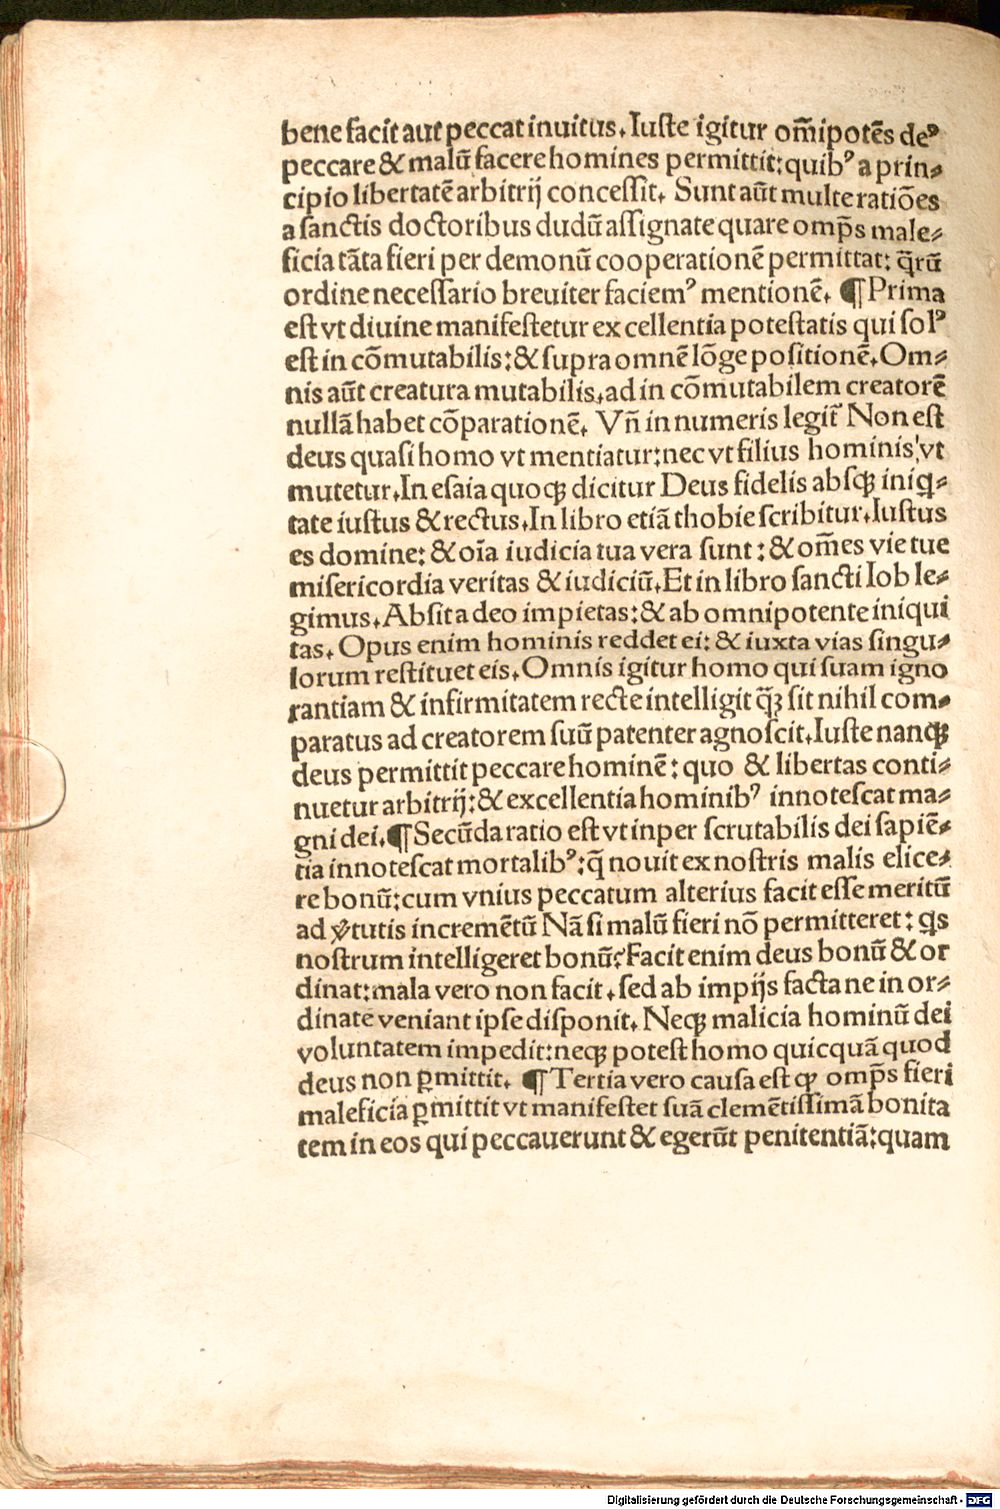 bene facit aut peccat inuitus. Iuste igitur om̄ipotēs deꝰ
peccare & malū facere homines permittit: quibꝰ a prin⸗
cipio libertatē arbitrij concessit. Sunt aūt multe ratiōes
a sanctis doctoribus dudū assignate quare omp̄s male⸗
ficia tāta fieri per demonū cooperationē permittat: q̄rū
ordine necessario breuiter faciemꝰ mentionē. ¶ Prima
est vt diuine manifestetur excellentia potestatis qui solꝰ
est in cōmutabilis: & supra omnē lōge positionē. Om⸗
nis aūt creatura mutabilis. ad in cōmutabilem creatorē
nullā habet cōparationē. Vn̄ in numeris legit̄ Non est
deus quasi homo vt mentiatur: nec vt filius hominis, vt
mutetur. In esaia quoqꝫ dicitur Deus fidelis absqꝫ iniq⸗
tate iustus & rectus. In libro etiā thobie scribitur. Iustus
es domine: & oīa iudicia tua vera sunt: & om̄es vie tue
misericordia veritas & iudiciū. Et in libro sancti Iob le⸗
gimus. Absit a deo impietas: & ab omnipotente iniqui
tas. Opus enim hominis reddet ei: & iuxta vias singu⸗
lorum restituet eis. Omnis igitur homo qui suam igno
rantiam & infirmitatem recte intelligit q̄ꝫ sit nihil com⸗
paratus ad creatorem suū patenter agnoscit. Iuste nanqꝫ
deus permittit peccare hominē: quo & libertas conti⸗
nuetur arbitrij: & excellentia hominibꝰ innotescat ma⸗
gni dei. ¶ Secūda ratio est vt inper scrutabilis dei sapiē⸗
tia innotescat mortalibꝰ: q̄ nouit ex nostris malis elice⸗
re bonū: cum vnius peccatum alterius facit esse meritū
ad ꝟtutis incremētū Nā si malū fieri nō permitteret: qs
nostrum intelligeret bonū? Facit enim deus bonū & or
dinat: mala vero non facit. sed ab impijs facta ne in or⸗
dinate veniant ipse disponit. Neqꝫ malicia hominū dei
voluntatem impedit: neqꝫ potest homo quicquā quod
deus non ꝑmittit. ¶ Tertia vero causa est ꝙ omp̄s fieri
maleficia ꝑmittit vt manifestet suā clemētissimā bonita
tem in eos qui peccauerunt & egerūt penitentiā: quam
Digitalisierung gefördert durch die Deutsche Forschungsgemeinschaft - DFG